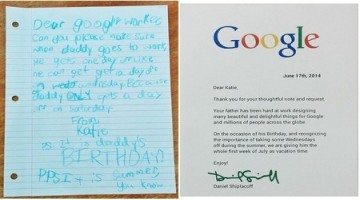 Dear google workers
Can you please make sure
when daddy goes to work
he gets one day
he can get a day
Daddy ONLY gets a day
on Saturday
From
Katie
PS. It is daddy's
BIRTHDAY!
PPS It is summer
You know
Google
June 17th, 2014
Dear Katie,
Thank you for your thoughtful note and request.
Your father has been hard at work designing
many beautiful and delightful things for Google
and millions of people across the globe
On the occasion of his Birthday, and recognizing
the importance of taking some Wednesdays
off during the summer, we are giving him the
whole first week of July as vacation time.
Enjoy!
Daniel Shiplacoff